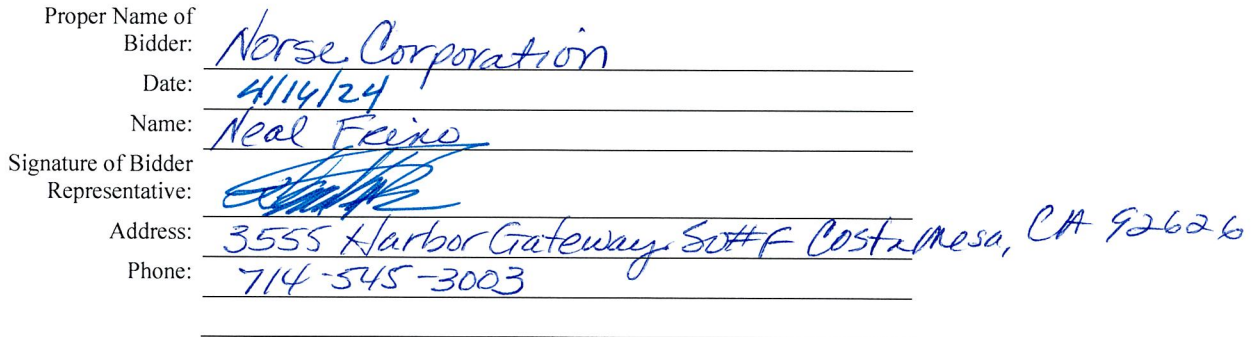 Proper Name of
Bidder: Norse Corporation
Date: 4/14/24
Name: Neal
Signature of Bidder
Representative:
Address: 3555 Harbor Gateway So #F Costa Mesa, CA 92626
Phone: 714-545-3003